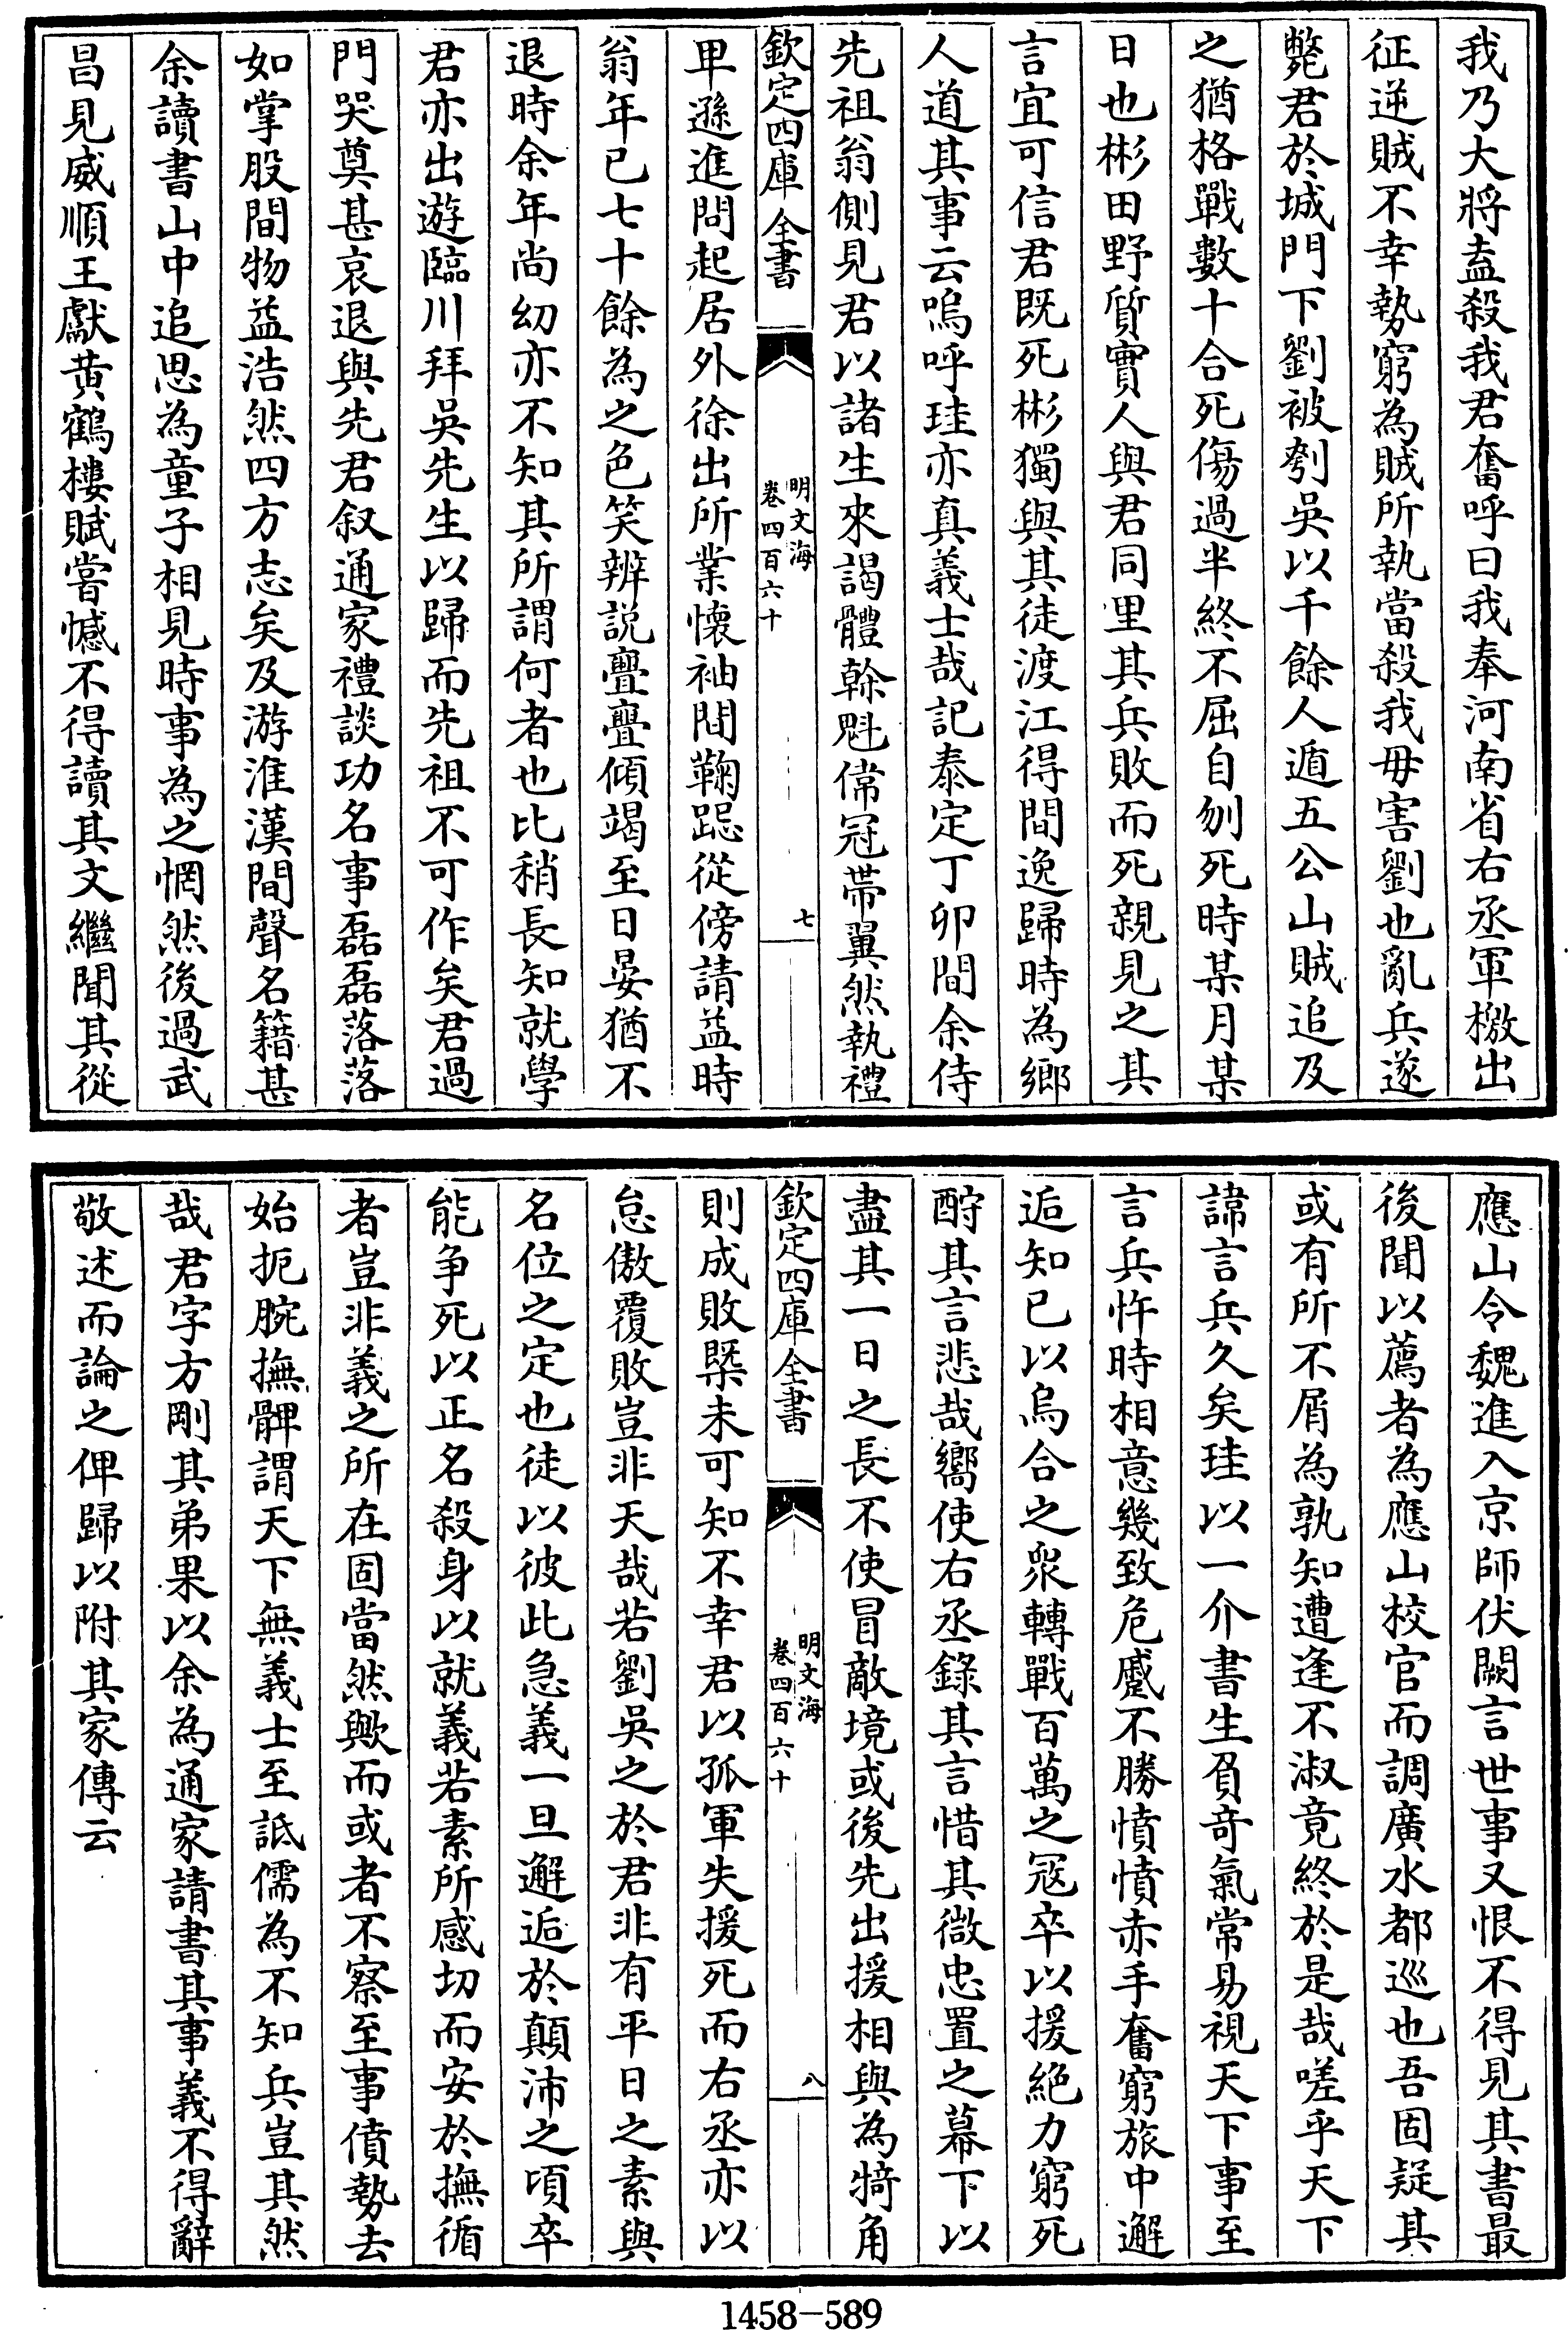 我乃大將盍殺我君奮呼曰我奉河南省右丞軍檄出
征逆賊不幸勢窮為賊所執當殺我毋害劉也亂兵遂
斃君於城門下劉被刳吳以千餘人遁五公山賊追及
之猶格戰數十合死傷過半終不屈自刎死時某月某
日也彬田野質實人與君同里其兵敗而死親見之其
言宜可信君既死彬獨與其徒渡江得間逸歸時為鄉
人道其事云嗚呼珪亦真義士哉記泰定丁卯間余侍
先祖翁側見君以諸生來謁體幹魁偉冠帶翼然執禮
欽定四庫全書
明文海
卷四百六十
七
卑遜進問起居外徐出所業懷袖間鞠跽從傍請益時
翁年已七十餘為之色笑辨說亹亹傾竭至日晏猶不
退時余年尚幼亦不知其所謂何者也比稍長知就學
君亦出遊臨川拜吳先生以歸而先祖不可作矣君過
門哭奠甚哀退與先君叙通家禮談功名事磊磊落落
如掌股間物益浩然四方志矣及游淮漢間聲名籍甚
余讀書山中追思為童子相見時事為之惘然後過武
昌見威順王獻黄鶴樓賦嘗憾不得讀其文繼聞其從
應山令魏進入京師伏闕言世事又恨不得見其書最
後聞以薦者為應山校官而調廣水都巡也吾固疑其
或有所不屑為孰知遭逢不淑竟終於是哉嗟乎天下
諱言兵久矣珪以一介書生負奇氣常易視天下事至
言兵忤時相意幾致危蹙不勝憤憤赤手奮窮旅中邂
逅知已以烏合之衆轉戰百萬之冦卒以援絶力窮死
酹其言悲哉嚮使右丞錄其言惜其微忠置之幕下以
盡其一日之長不使冒敵境或後先出援相與為犄角
欽定四庫全書
明文海
卷四百六十
八
則成敗槩未可知不幸君以孤軍失援死而右丞亦以
怠傲覆敗豈非天哉若劉吳之於君非有平日之素與
名位之定也徒以彼此急義一旦邂逅於顛沛之頃卒
能争死以正名殺身以就義若素所感切而安於撫循
者豈非義之所在固當然歟而或者不察至事僨勢去
始扼腕撫髀謂天下無義士至詆儒為不知兵豈其然
哉君字方剛其弟果以余為通家請書其事義不得辭
敬述而論之俾歸以附其家傳云
1458-589